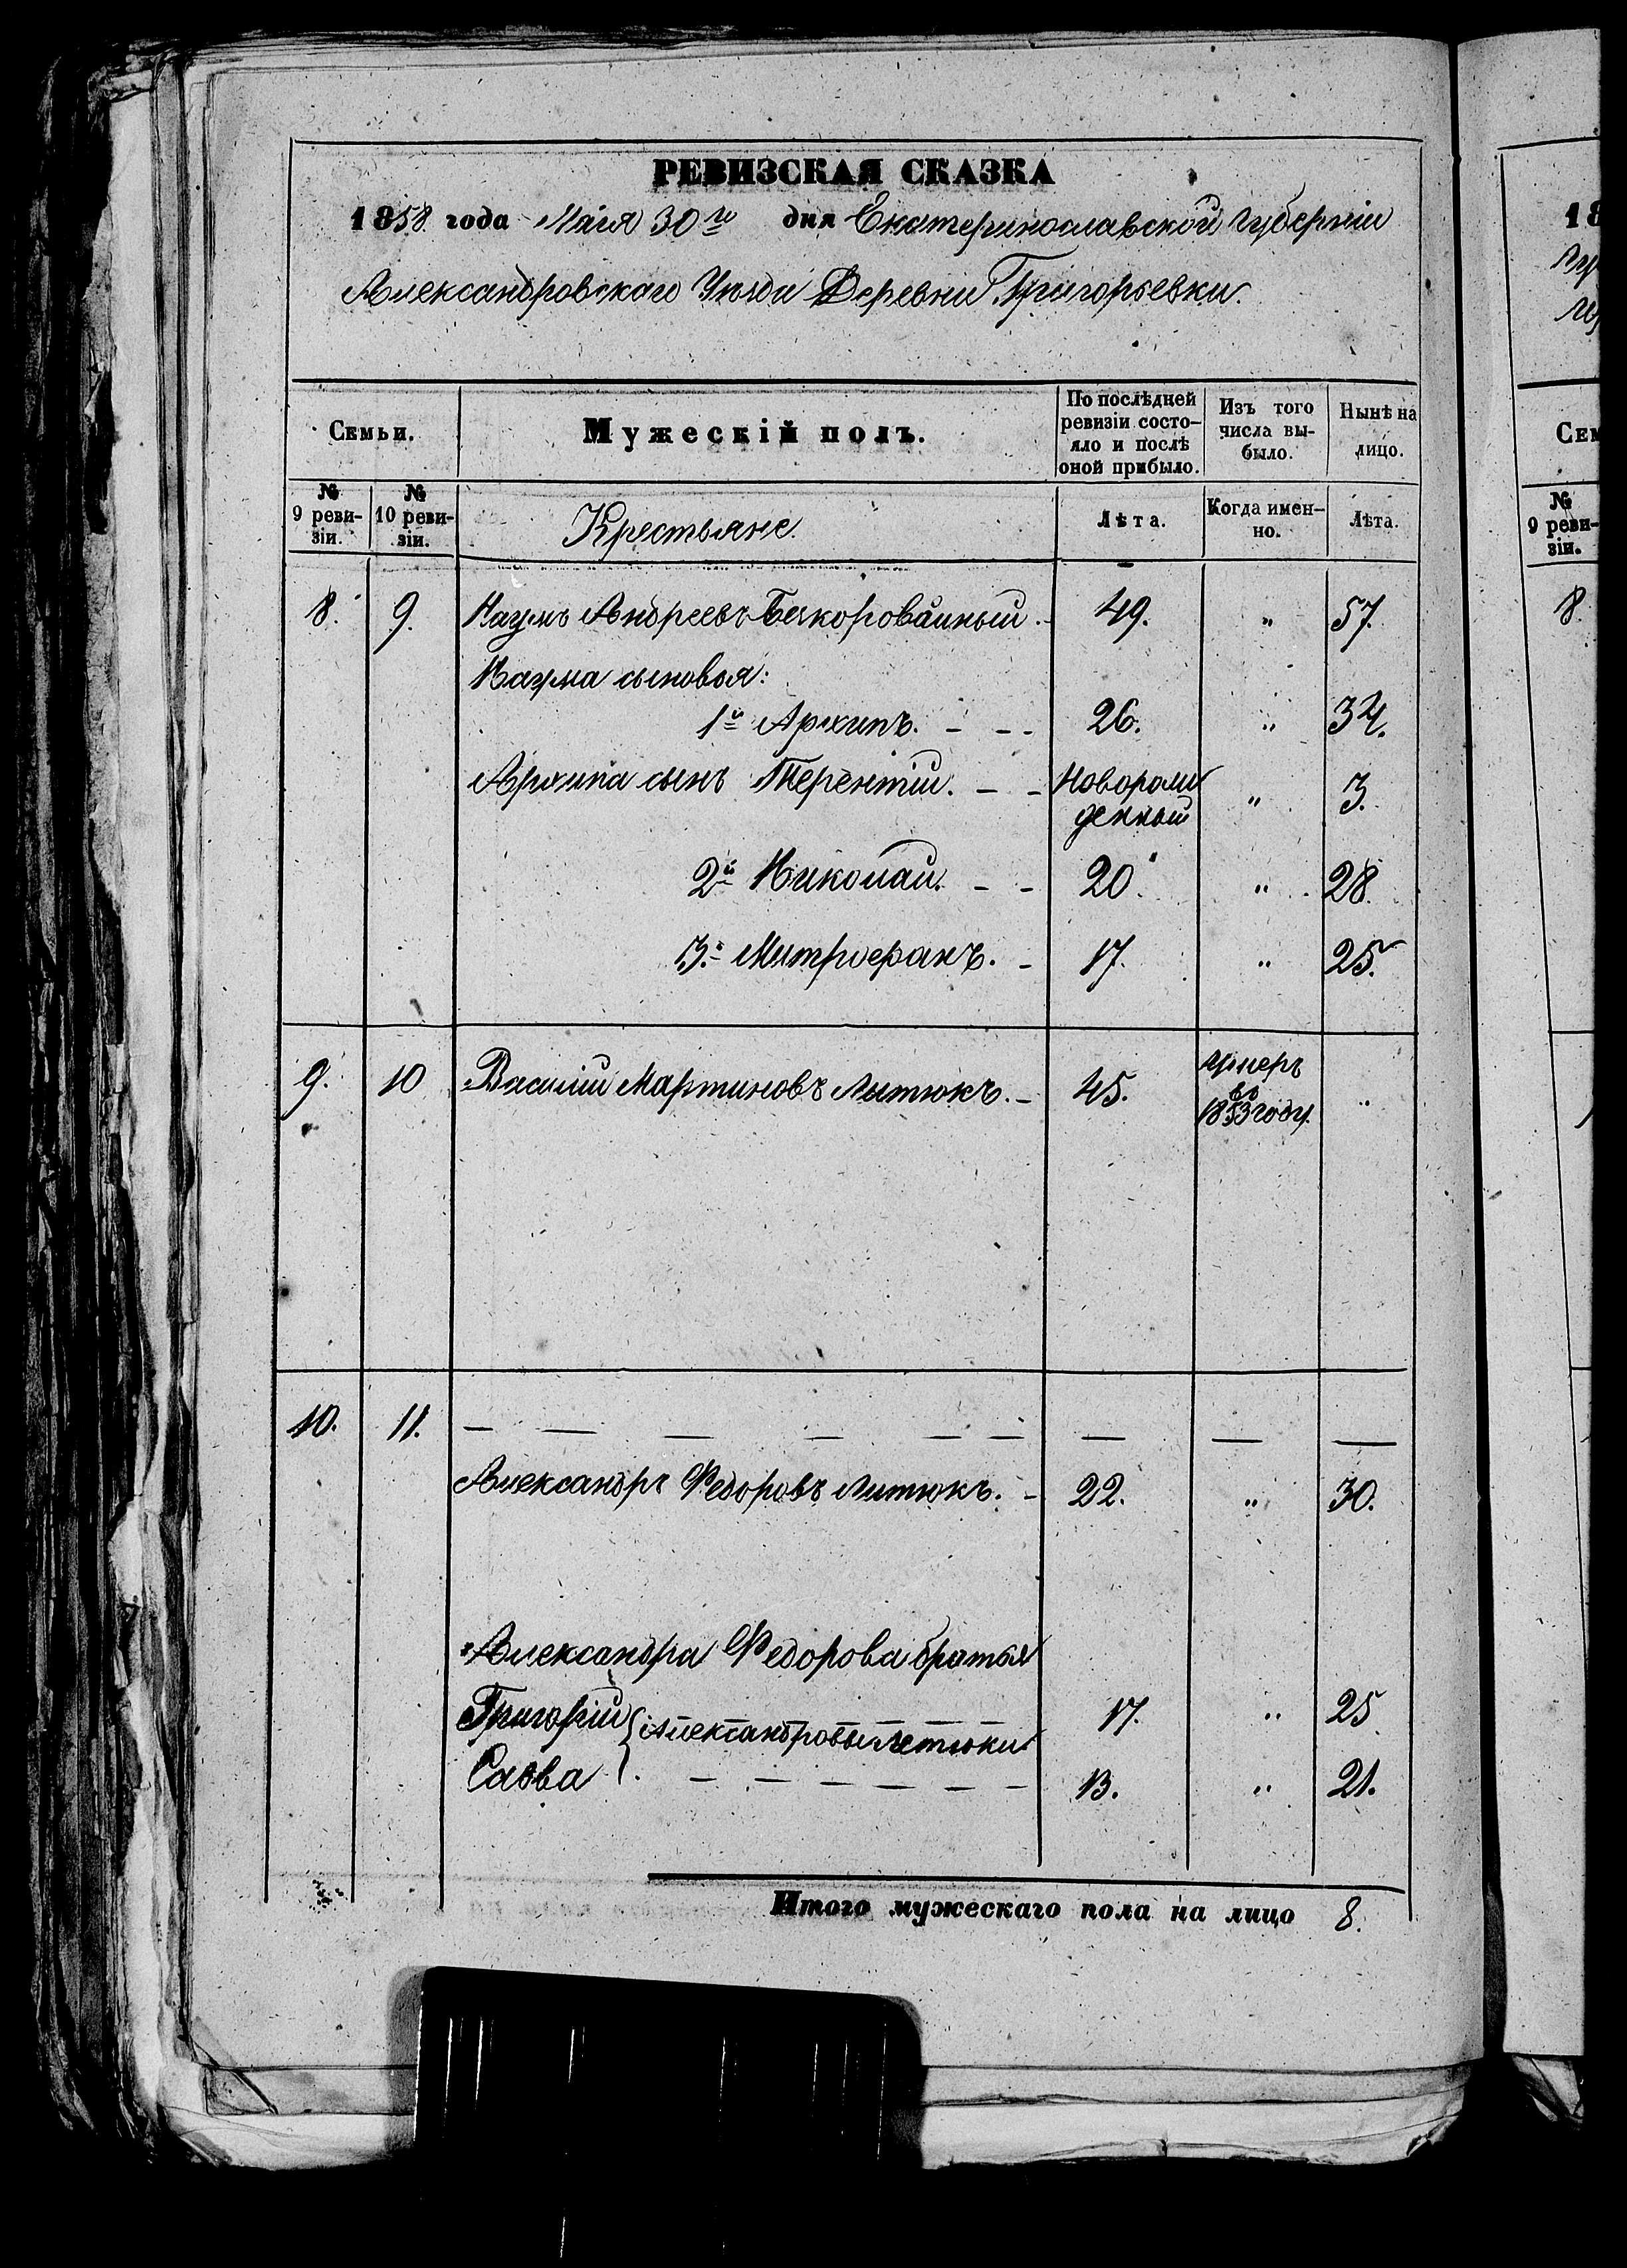 РЕВИЗСКАЯ СКАЗКА
1858 года Маія 30го дня Екатеринославской Губерніи
Александровскаго Уѣзда Деревни Григорьевки.
Семьи.
Мужескій полъ.
По послѣдней ревизіи состояло и послѣ оной прибыло.
Изъ того числа выбыло.
Нынѣ на лицо.
№ 9 ревизіи.
№ 10 ревизіи.
Крестьяне.
Лѣта.
Когда именно.
Лѣта.
8. 9. Наумъ Андреевъ 49. " 57.
Наума сыновья:
1й Архипъ. - - - 26. " 34.
Архипа сынъ Терентій. - - Новорожденный " 3.
2й Николай. - - 20. " 28.
3.й Митрофанъ. - 17. " 25.
9. 10 Василій Мартиновъ Литюкъ. - 45. умеръ въ 1853 году. "
10. 11. — — — — — — — — —
Александръ Федоровъ Литюкъ. - 22. " 30.
Александра Федорова братья
Григорій { Александровы Летюки 17. " 25
Савва 13. " 21.
Итого мужескаго пола на лицо 8.
18
Сем
№
9 реви-
зіи.
8.